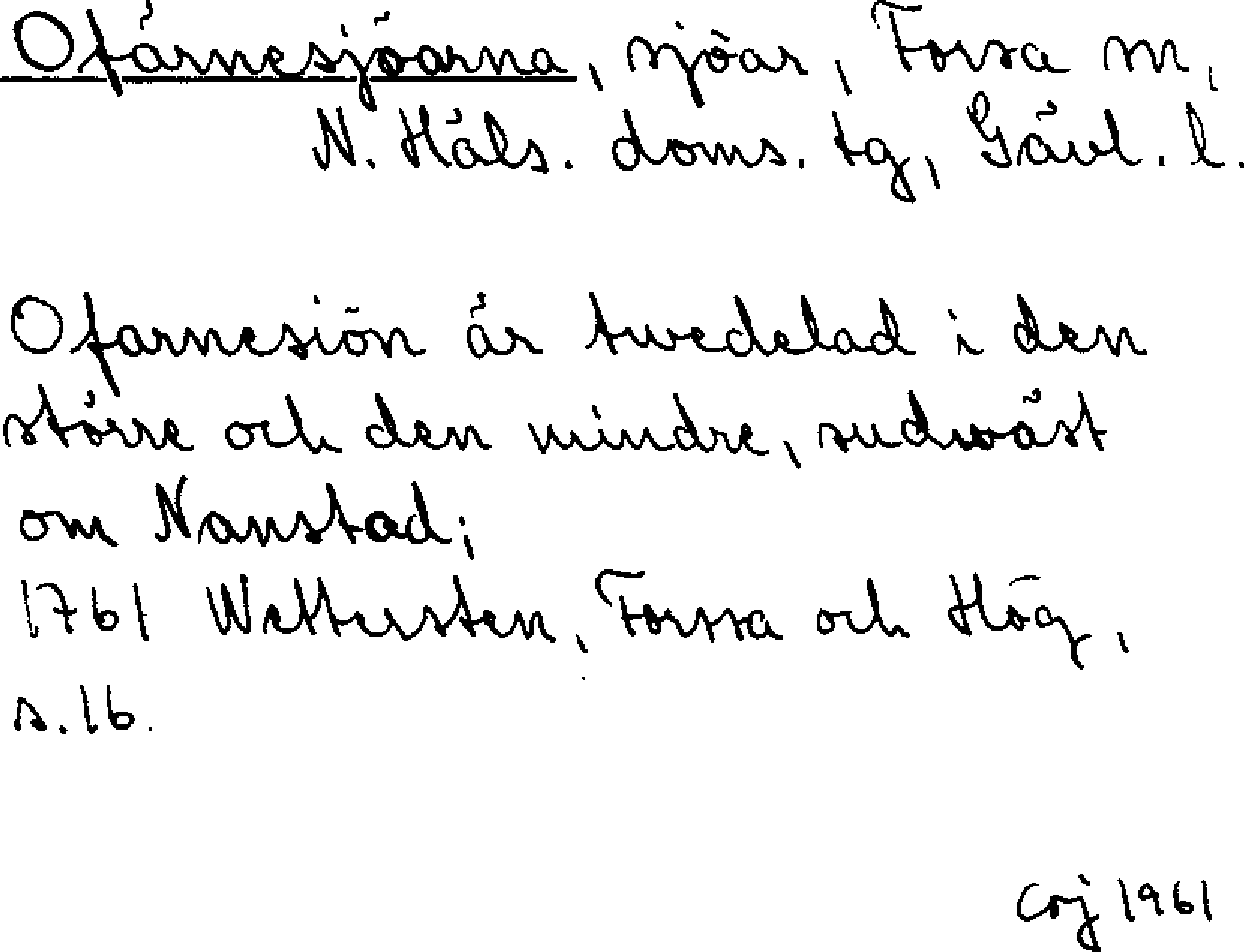 Ofärnesjöarna, sjöar, Forsa sn,
N. Häls. doms. tg, Gävl. l.
Ofarnesiön är twedelad i den
större och den mindre, sudwäst
om Nanstad;
1761 Wettersten, Forssa och Hög,
s. 16.
Coj 1961